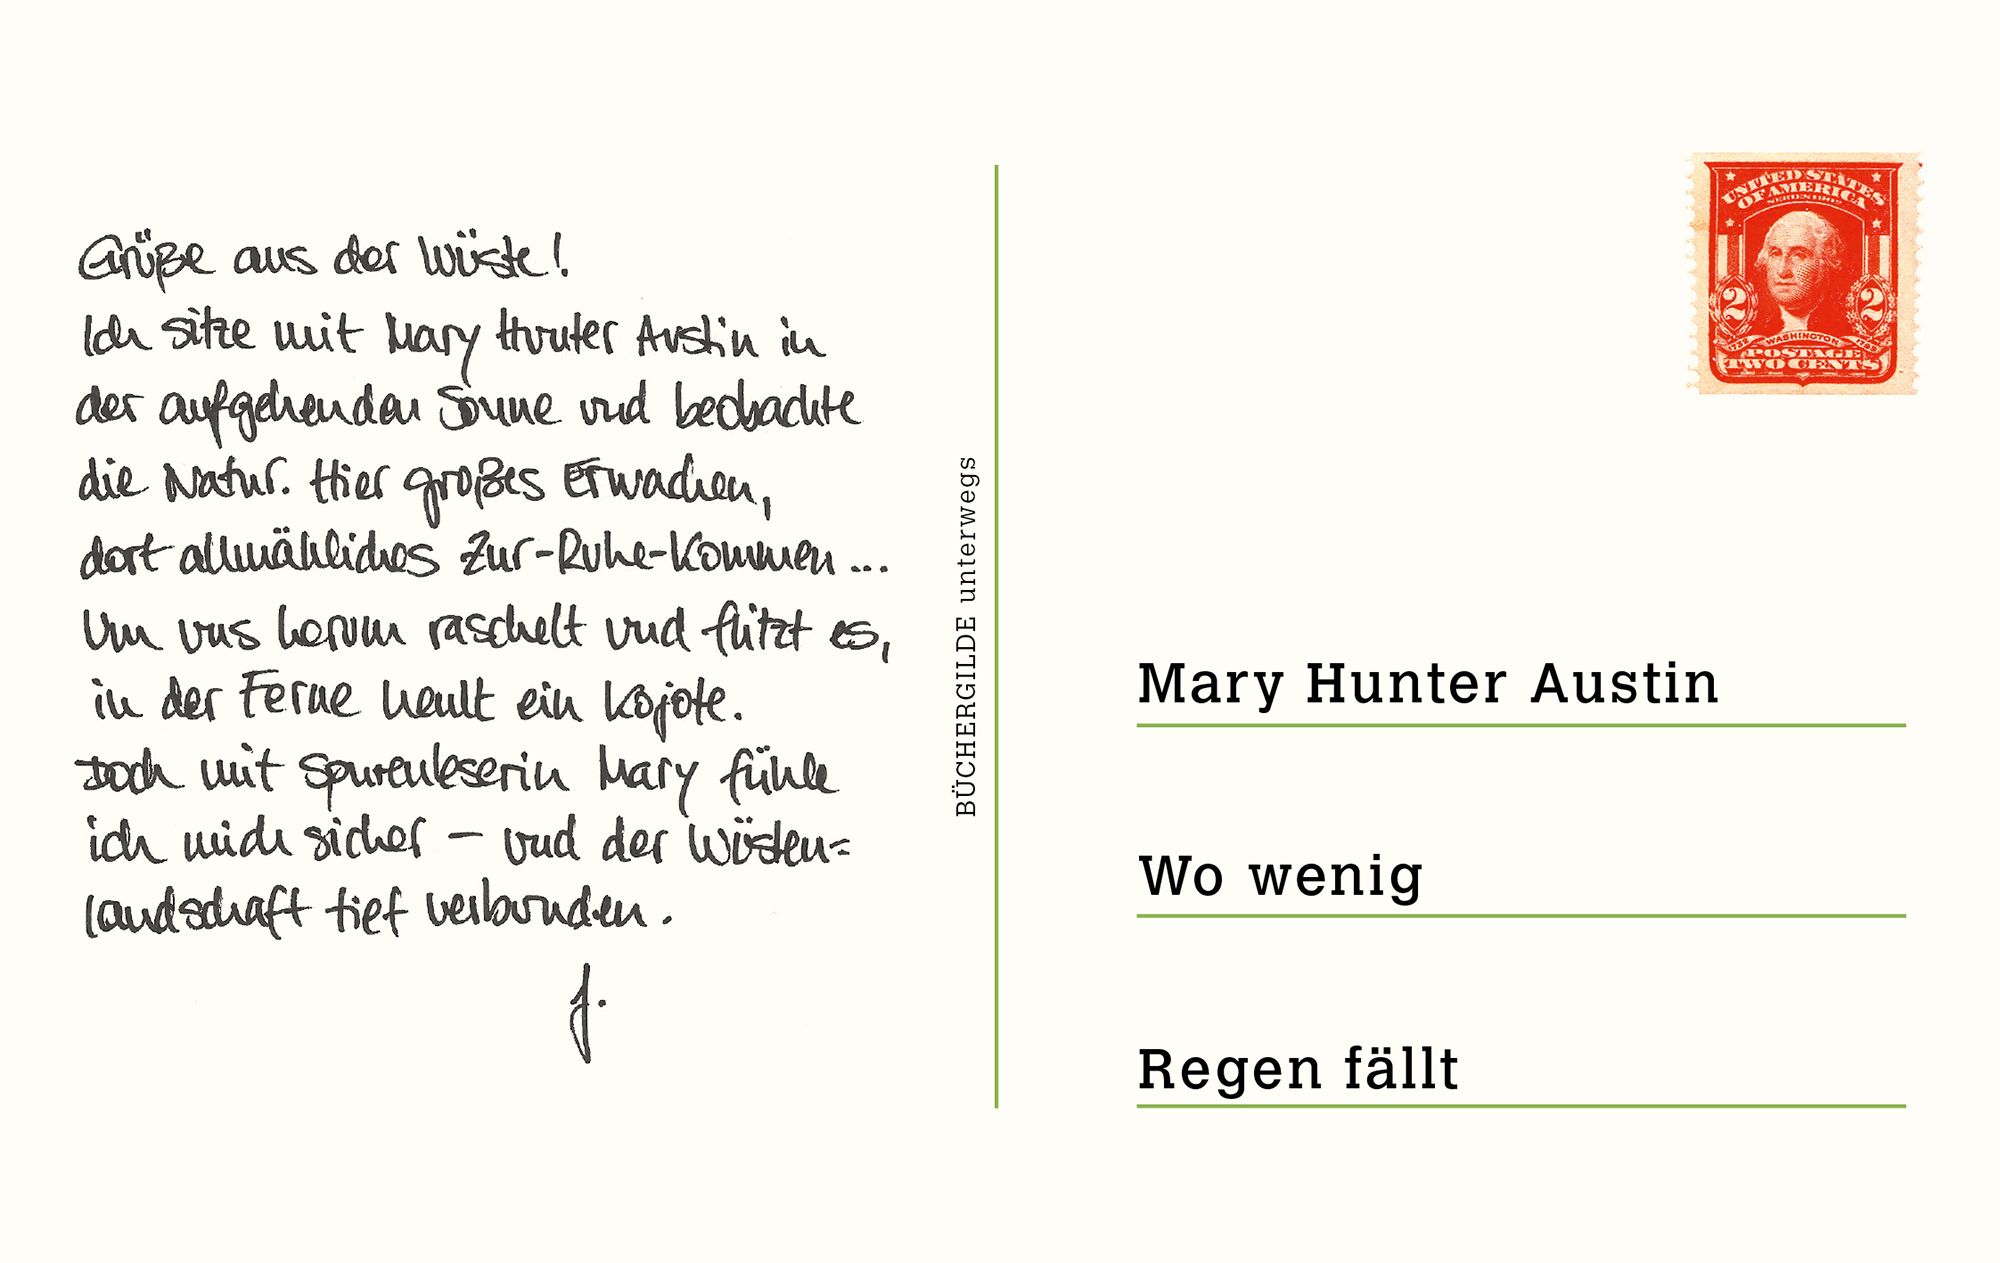 Grüße aus der Wüste!
Ich sitze mit Mary Hunter Austin in
der aufgehenden Sonne und beobachte
die Natur. Hier großes Erwachen,
dort allmähliches Zur-Ruhe-Kommen...
Um uns herum raschelt und flitzt es,
in der Ferne heult ein Kojote.
Doch mit Spurenleserin Mary fühle
ich mich sicher – und der Wüsten=
landschaft tief verbunden.
J.
BÜCHERGILDE unterwegs
UNITED STATES
OF AMERICA
SERIES 1902
2 2
1732 WASHINGTON 1799
POSTAGE
TWO CENTS
Mary Hunter Austin
Wo wenig
Regen fällt